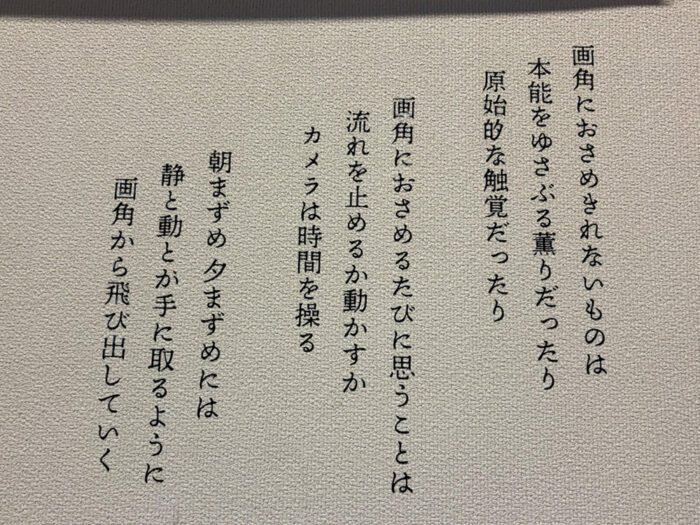 画角におさめきれないものは
本能をゆさぶる薫りだったり
原始的な触覚だったり
画角におさめるたびに思うことは
流れを止めるか動かすか
カメラは時間を操る
朝まずめ 夕まずめには
静と動とが手に取るように
画角から飛び出していく